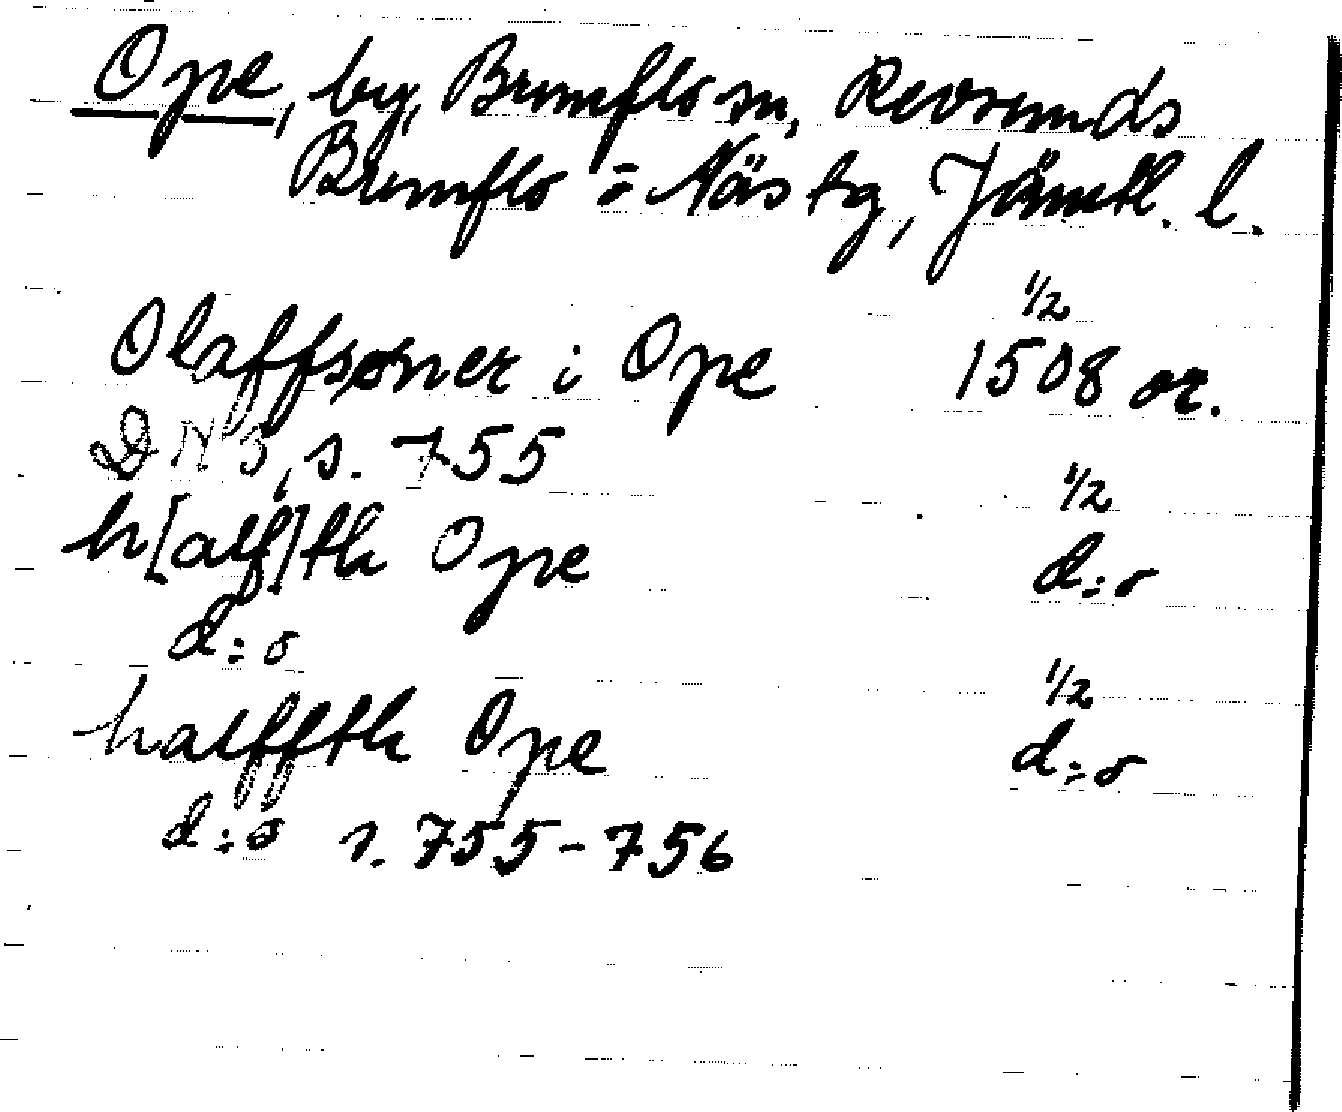 Ope, by, Brunflo sn, Revsunds
Brunflo o Näs tg, Jämtl. l.
1/2
Olaffsøner i Ope 1508 or.
DN 3, s. 755
1/2
h[alf]th Ope d:o
d:o
1/2
halffth Ope d:o
d:o s. 755-756